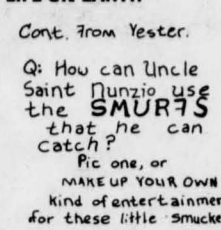 Cont. From Yester.
Q: How can Uncle
Saint Nunzio use
the SMURFS
that he can
catch?
Pic one, or
MAKE UP YOUR OWN
kind of entertainmen
for these little smucke